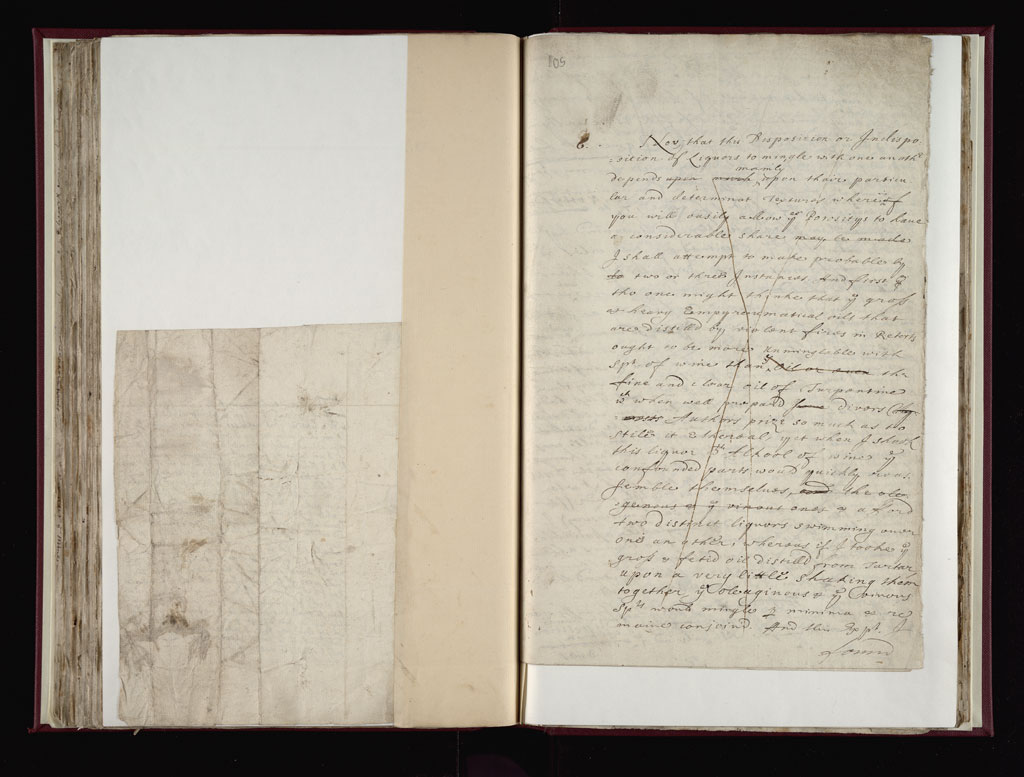 105
6. Now, that this Disposition or Indispo
sition of Liquors to mingle with one anoth^r
mainly
depends upon much upon thaire particu
lar and determinat Textures whereof
you will easily allow y^e Porosityes to have
a considerable share may be made
I shall attempt to make probable by
to two or three Instances. And first
tho one might thinke that y^e gross
& heavy Empyreumatical oils that
are distilld by violent fires in Retorts
ought to be more unmingleable with
Sp^t of wine than oil or even the
fine and clear oil of Turpentine
w^ch when well prepard some divers
Authors prize so much as to
stile it Etherial; yet when I shook
this liquor w^th Alkool of wine y^e
confounded parts would quickly reas
semble themselves, and the ole
ginous & y^e vinous ones & afford
two distinct liquors swimming over
one an other; whereas if I tooke y^e
gross & fetid oil distilld from Tartar
upon a very little shaking them
together y^e oleaginous & y^e vinous
Sp^ts would mingle p minima & re
maine conjoind. And this Exp^t. I